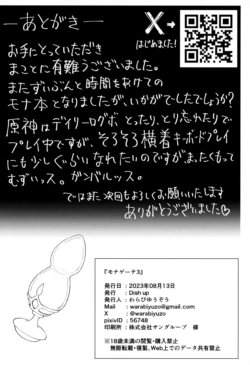 ―あとがき―
X→
はじめました!
お手にとっていただき
まことに有難うございました。
またずいぶんと時間をあけての
モナ本となりましたが、いかがでしたでしょうか?
原神はデイリーログボとったり、とり忘れたりで
プレイ中ですが、そろそろ横着キーボードプレイ
にも少しぐらいなれたいのですがまったくもって
むずいッス。ガンバルッス。
ではまた次回もよろしくお願いいたします
ありがとうございました♡
『モナゲーテ3』
発行日 : 2023年08月13日
発行 : Dish up
発行人 : わらびゆうぞう
Mail : warabiyuzo@gmail.com
X : @warabiyuzo
pixivID : 56748
印刷所 : 株式会社サングループ 様
※18歳未満の閲覧・購入禁止
無断転載・複製、Web上でのデータ共有禁止